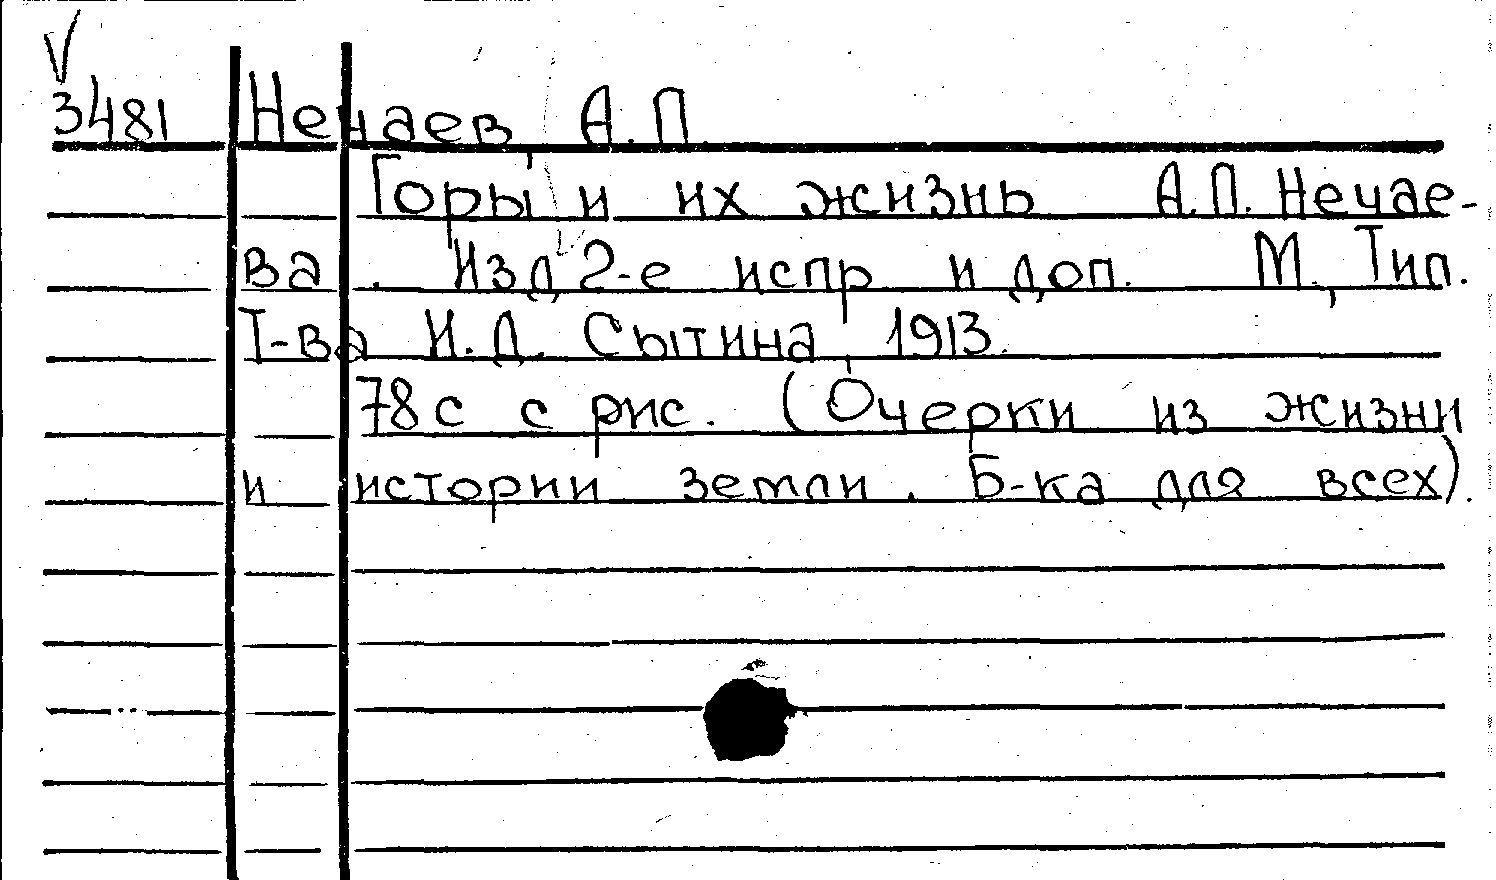 V
3481 Нечаев, А.П.
Горы и их жизнь А.П. Нечае-
ва. Изд 2-е испр и доп. М., Тип.
Т-ва И.Д. Сытина, 1913.
78с с рис. (Очерки из жизни
и истории земли. Б-ка для всех).